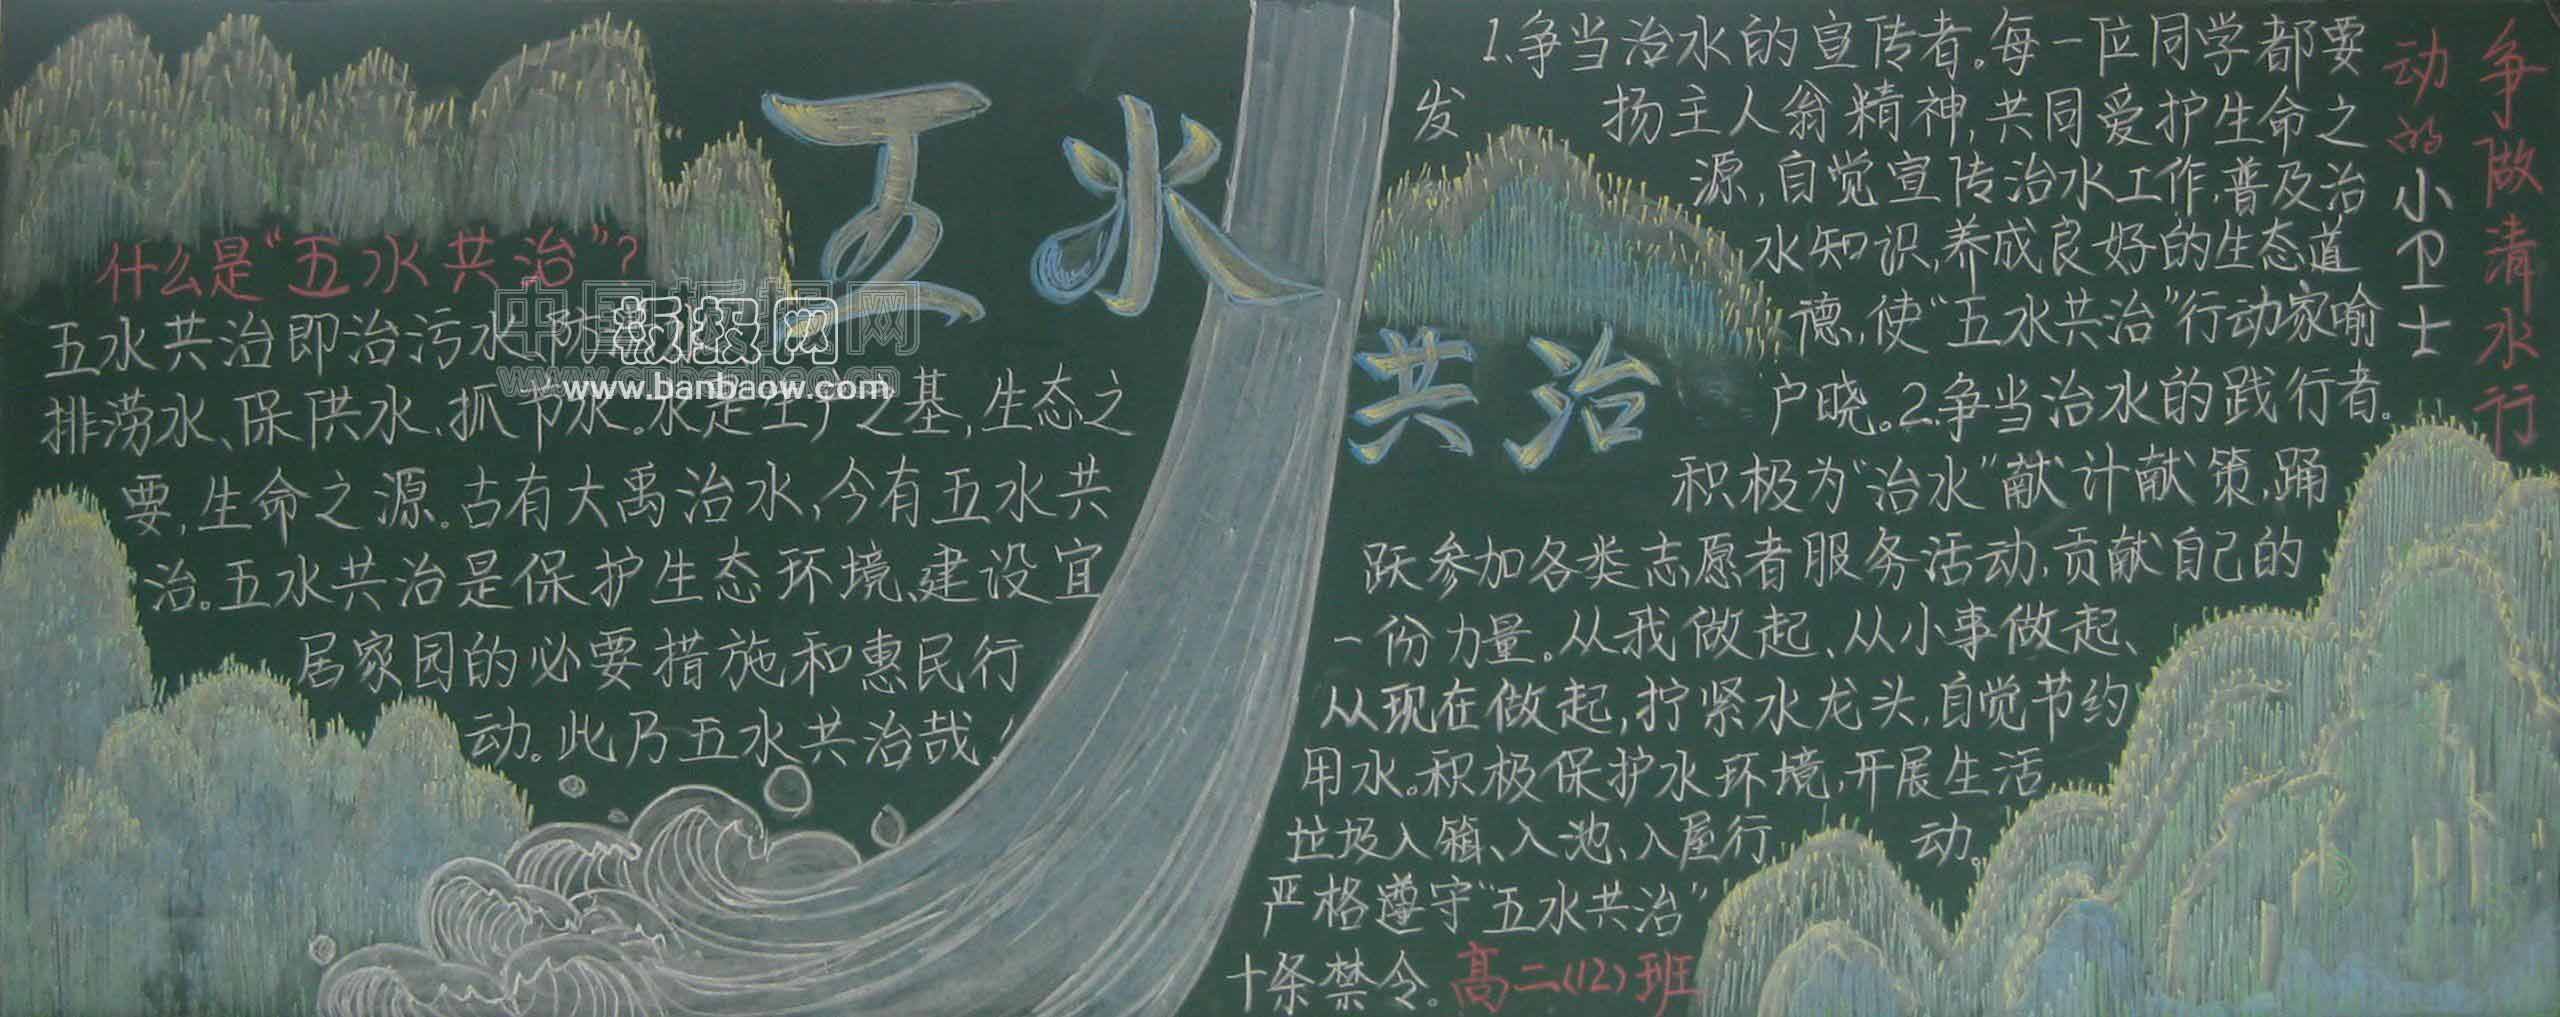 五水
共治
什么是“五水共治”?
五水共治即治污水、防
排涝水、保供水、抓节水。水是生产之基,生态之
要,生命之源。古有大禹治水,今有五水共
治。五水共治是保护生态环境、建设宜
居家园的必要措施和惠民行
动。此乃五水共治哉
争做清水行
动的小卫士
1.争当治水的宣传者。每一位同学都要
发 扬主人翁精神,共同爱护生命之
源,自觉宣传治水工作,普及治
水知识,养成良好的生态道
德,使“五水共治”行动家喻
户晓。2.争当治水的践行者。
积极为“治水”献计献策,踊
跃参加各类志愿者服务活动,贡献自己的
一份力量。从我做起、从小事做起、
从现在做起,拧紧水龙头,自觉节约
用水。积极保护水环境,开展生活
垃圾入箱、入池、入屋行 动。
严格遵守“五水共治”
十条禁令。高二(12)班
中国板报网
板报网
www.banbaow.com